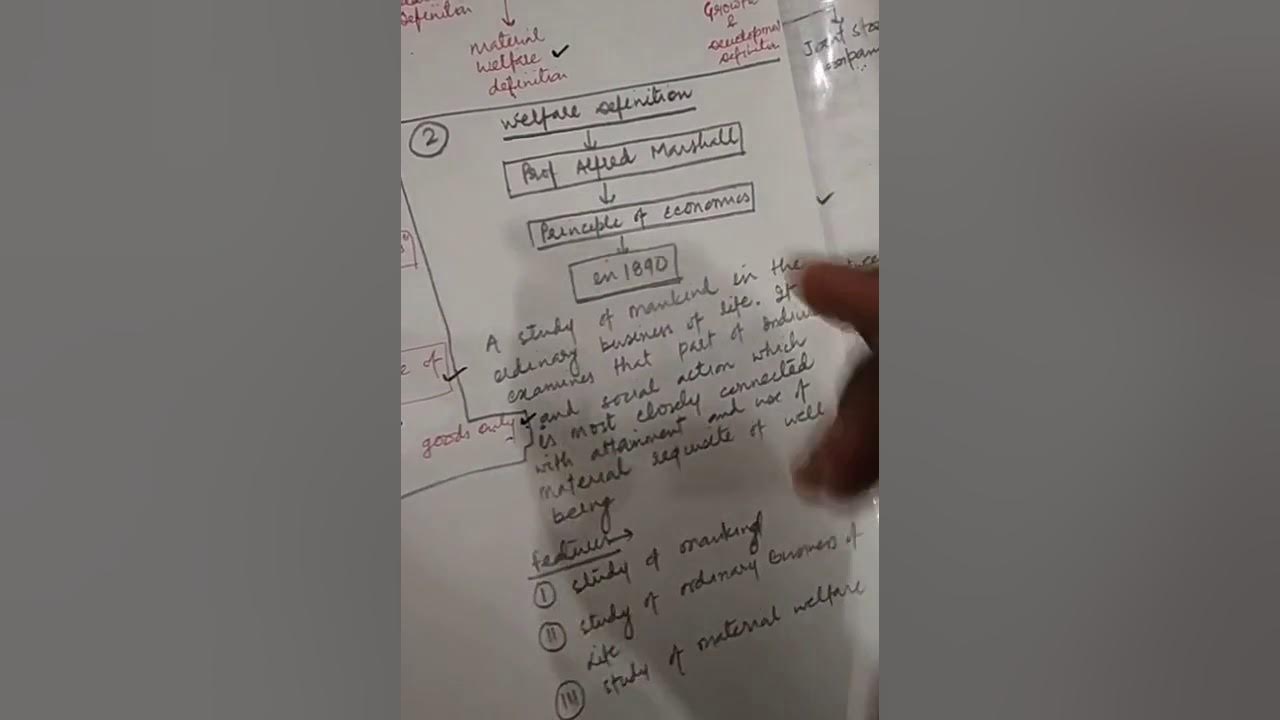 definition
material
welfare
definition
Growth
&
Development
definition
Joint Sto
compan
2
welfare definition
Prof Alfred Marshall
Principle of economics
in 1890
A study of mankind in the
ordinary business of life. It
examines that part of Indiv
and social action which
is most closely connected
with attainment and use of
material requisite of well
being
e of
goods only
features
I study of mankind
II study of ordinary business of
life
III study of material welfare